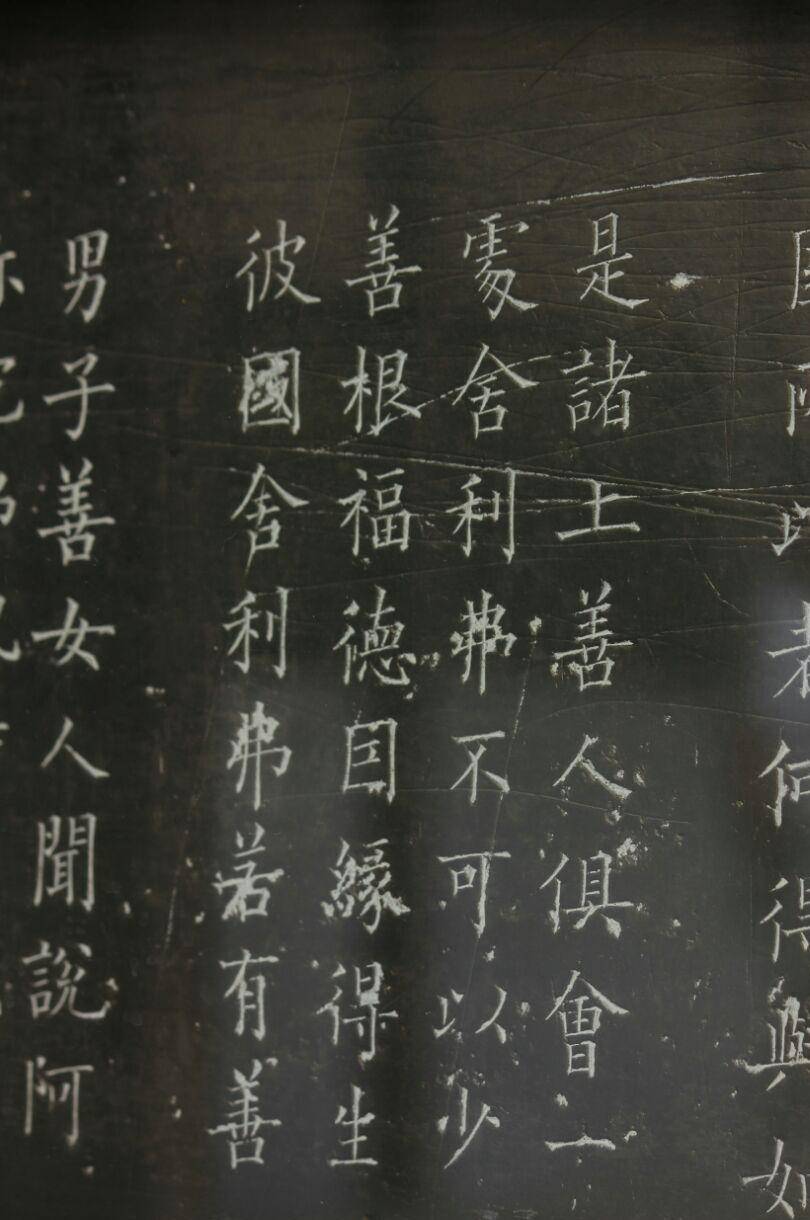 以者何得與如
是諸上善人俱會一
處舍利弗不可以少
善根福德囙緣得生
彼國舍利弗若有善
男子善女人聞說阿